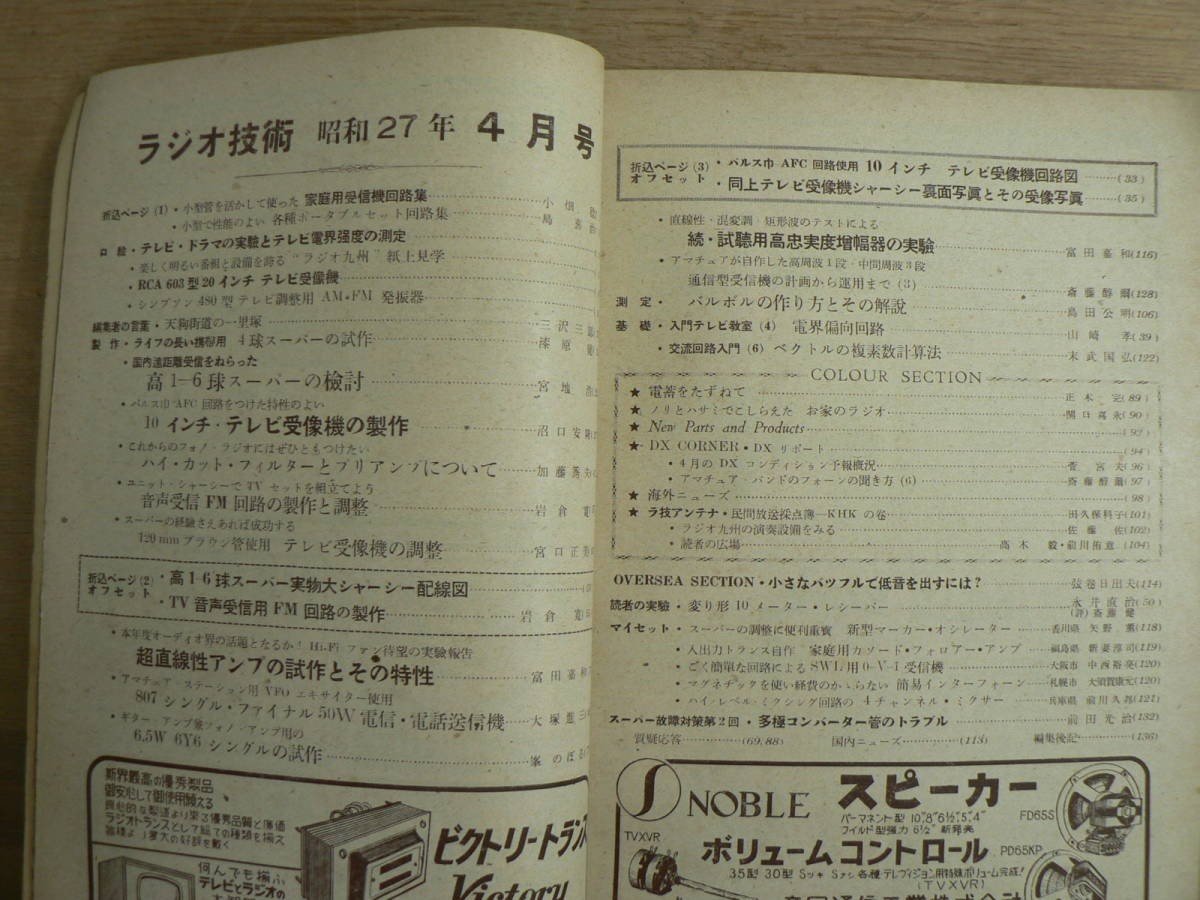 ラジオ技術 昭和27年 4月号
折込ページ(1)・小型管を活かして使った 家庭用受信機回路集
・小型で性能のよい 各種ポータブルセット回路集
口絵・テレビ・ドラマの実験とテレビ電界强度の測定
・楽しく明るい番組と設備を誇る "ラジオ九州" 紙上見学
・RCA 603型20インチ テレビ受像機
・シンプソン 480型 テレビ調整用 AM・FM 発振器
編集者の言葉・天狗街道の一里塚 三沢三
製作・ライフの長い携帶用 4球スーパーの試作 漆原
・国内遠距離受信をねらった
高1-6球スーパーの檢討 宮地
・パルス巾 AFC 回路をつけた特性のよい
10インチ・テレビ受像機の製作 沼口安
・これからのフォノ・ラジオにはぜひともつけたい
ハイ・カット・フィルターとプリアンプについて 加藤
・ユニット・シャーシーで TV セットを組立てよう
音声受信 FM 回路の製作と調整 岩倉
・スーパーの経験さえあれば成功する
120mm ブラウン管使用 テレビ受像機の調整 宮口正
折込ページ(2) オフセット
・高1-6球スーパー実物大シャーシー配線図
・TV 音声受信用 FM 回路の製作 岩倉
・本年度オーディオ界の話題となるか! Hi-Fi ファン待望の実験報告
超直線性アンプの試作とその特性 富田嘉和
・アマチュア・ステーション用 VFO エキサイター使用
807 シングル・ファイナル 50W 電信・電話送信機 大塚
・ギター・アンプ兼フォノ・アンプ用の
6.5W 6Y6 シングルの試作 峯のぼる
斯界最高の優秀製品
御安心して御使用願える
良心的な製造より来る優秀品質と廉価
ラジオトランスとして総ての種類を揃え
何んでも揃ふ
テレビとラジオの
ビクトリートランス
Victory
折込ページ(3) オフセット
・パルス巾 AFC 回路使用 10インチ テレビ受像機回路図 (33)
・同上テレビ受像機シャーシー裏面写眞とその受像写眞 (35)
・直線性・混変調・矩形波のテストによる
続・試聴用高忠実度増幅器の実験 富田嘉和(116)
・アマチュアが自作した高周波1段・中間周波3段
通信型受信機の計画から運用まで(3) 斎藤醇爾(128)
測定・バルボルの作り方とその解説 島田公明(106)
基礎・入門テレビ教室(4) 電界偏向回路 山崎 孝(39)
・交流回路入門(6) ベクトルの複素数計算法 末武国弘(122)
COLOUR SECTION
★ 電蓄をたずねて 正木 完(89)
★ ノリとハサミでこしらえた お家のラジオ 関口嘉永(90)
★ New Parts and Products (92)
★ DX CORNER・DX リポート (94)
・4月の DX コンディション予報概況 菅 宮夫(96)
・アマチュア・バンドのフォーンの聞き方(6) 斎藤醇爾(97)
★ 海外ニューズ (98)
★ ラ技アンテナ・民間放送採点簿—KHKの卷 田久保科子(101)
・ラジオ九州の演奏設備をみる 佐藤 佐(102)
・読者の広場 高木 毅・前川侑意(104)
OVERSEA SECTION・小さなバッフルで低音を出すには? 弦巻日出夫(114)
読者の実験・変り形 10メーター・レシーバー 永井直治(50)
(評)斎藤 健
マイセット・スーパーの調整に便利重寳 新型マーカー・オシレーター 香川県 矢野 薫(118)
・入出力トランス自作 家庭用カソード・フォロアー・アンプ 福島県 新妻淳司(119)
・ごく簡単な回路による SWL用 0-V-1 受信機 大阪市 中西裕亮(120)
・マグネチックを使い経費のかゝらない 簡易インターフォーン 札幌市 大須賀康元(120)
・ハイ・レベル・ミクシング回路の 4チャンネル・ミクサー 兵庫県 前川久郎(121)
スーパー故障対策第2回・多極コンバーター管のトラブル 前田光治(132)
質疑応答 (69,88) 国内ニューズ (113) 編集後記 (136)
NOBLE スピーカー
パーマネント型 10"8"6½"5"4"
フイルド型強力 6½" 新発売
FD65S
TVXVR
ボリュームコントロール PD65KP
35型 30型 Sッキ Sナシ 各種 テレヴィジョン用特殊ボリューム完成!
(TVXVR)